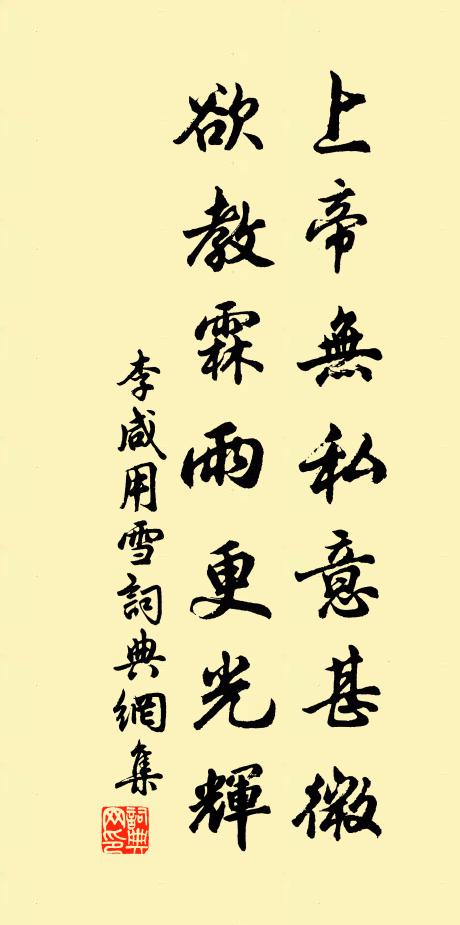 上帝無私意甚微
欲教霖雨更光輝
李咸用雪詞典網集
詞典网印